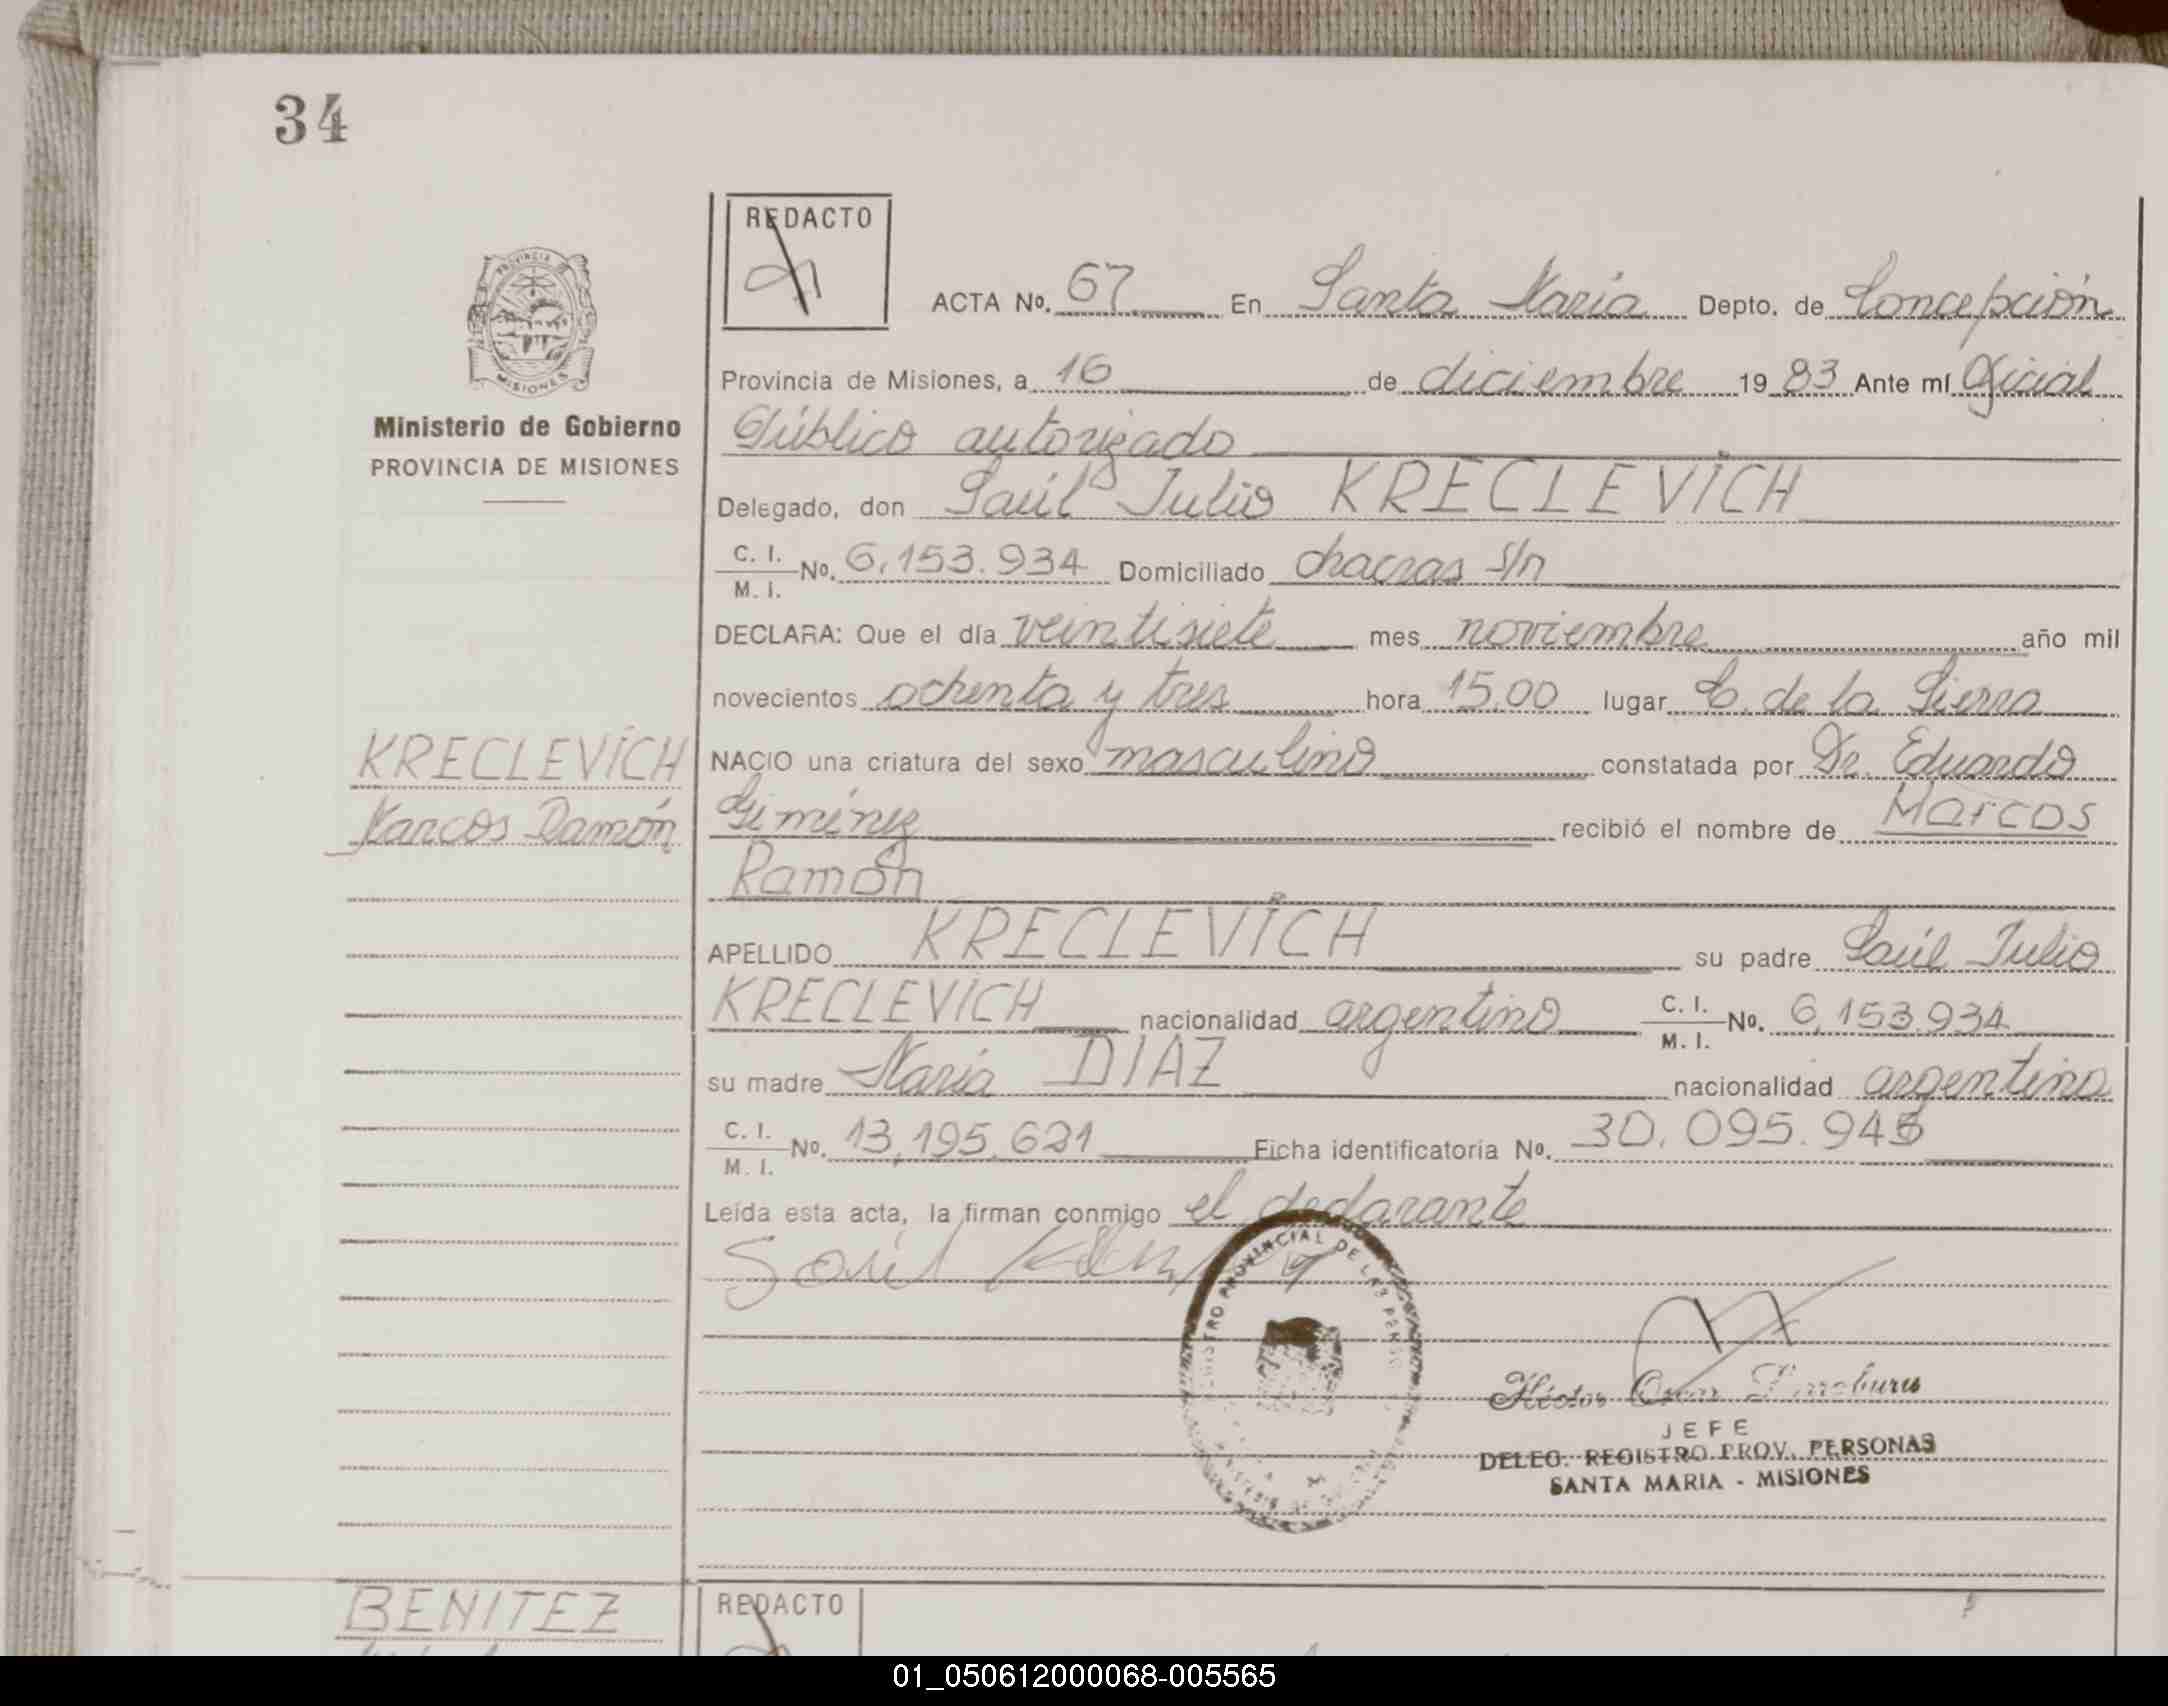 34
REDACTO
PROVINCIA DE
MISIONES
Ministerio de Gobierno
PROVINCIA DE MISIONES
ACTA No. 67 En Santa María Depto. de Concepción
Provincia de Misiones, a 16 de diciembre 1983 Ante mí Oficial
Público autorizado
Delegado, don Saúl Julio KRECLEVICH
C. I. / M. I. No. 6.153.934 Domiciliado chacras s/n
DECLARA: Que el día veintisiete mes noviembre año mil
novecientos ochenta y tres hora 15.00 lugar C. de la Sierra
NACIO una criatura del sexo masculino constatada por Dr. Eduardo
Giménez recibió el nombre de Marcos
Ramón
APELLIDO KRECLEVICH su padre Saúl Julio
KRECLEVICH nacionalidad argentino C. I. / M. I. No. 6.153.934
su madre María DIAZ nacionalidad argentina
C. I. / M. I. No. 13.195.621 Ficha identificatoria No. 30.095.945
Leída esta acta, la firman conmigo el declarante
Saúl
KRECLEVICH
Marcos Ramón
REGISTRO PROVINCIAL DE LAS PERSONAS
Héctor Oscar
JEFE
DELEG. REGISTRO PROV. PERSONAS
SANTA MARIA - MISIONES
BENITEZ
REDACTO
01_050612000068-005565